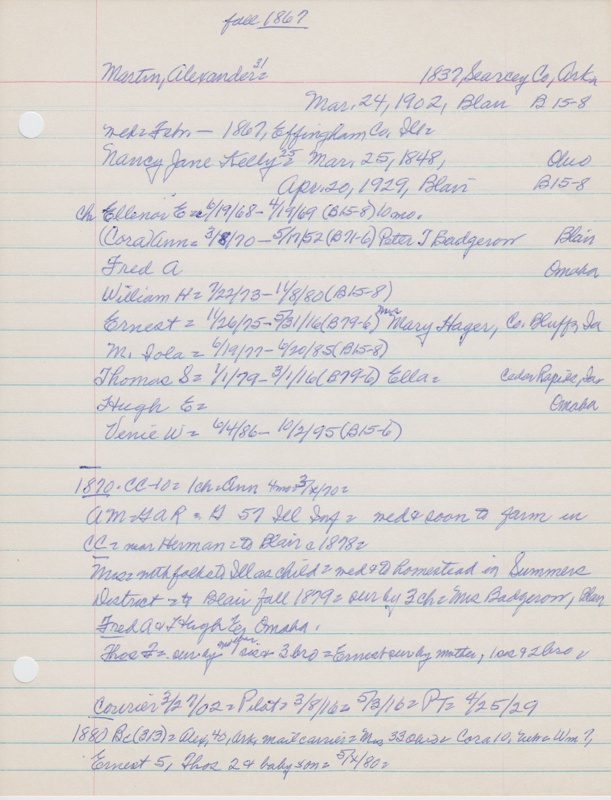 fall 1867
Martin, Alexander = 31 1837, Searcey Co, Ark
Mar. 24, 1902, Blair B 15-8
med = Febr - 1867, Effingham Co, Ill =
Nancy Jane Kelly = 25 Mar. 25, 1848, Ohio
Apr. 20, 1929, Blair B15-8
ch Ellenor E = 6/19/68 - 4/19/69 (B15-8) 10 mo.
(Cora) Ann = 3/8/70 - 5/17/52 (B71-6) Peter T Badgerow Blair
Fred A Omaha
William H = 7/22/73 - 1/8/80 (B15-8)
Ernest = 1/26/75 - 5/31/16 (B79-6) Mary Hager, Co. Bluffs, Ia
M. Iola = 6/19/77 - 6/20/85 (B15-8)
Thomas S = 1/1/79 - 3/1/16 (B79-6) Ella = Cedar Rapids, Ia
Hugh E = Omaha
Venie W = 6/4/86 - 10/2/95 (B15-6)
1870 - CC-10 = 1ch. Ann 4mo = 3/x/70 =
AM = GAR = H 57 Ill Inf = med & soon to farm in
CC = near Herman = to Blair c 1878 =
Mrs = with folks to Ill as child = med & to Homestead in Summers
District = to Blair fall 1879 = sur by 3 ch = Mrs Badgerow, Blair
Fred A & Hugh E, Omaha.
Thos = sur by sis & 3 bro = Ernest sur by mother, 1 sis & 2 bro
Courier 3/27/02 = Pilot = 3/8/16 = 5/3/16 = PT = 4/25/29
1880 Bc (313) = Alex, 40, Ark, mail carrier = Mrs 33 Ohio = Cora 10, = Wm 7,
Ernest 5, Thos 2 & baby son = 5/x/80 =